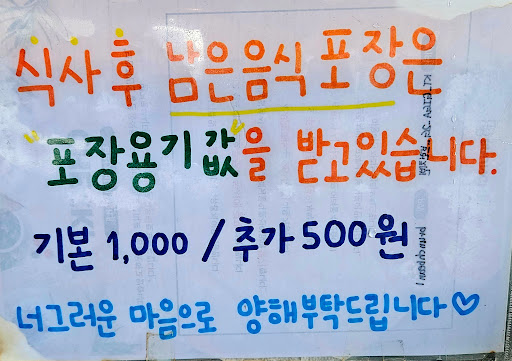 식사후 남은음식 포장은
"포장용기값"을 받고있습니다.
기본 1,000 / 추가 500원
너그러운 마음으로 양해부탁드립니다♡